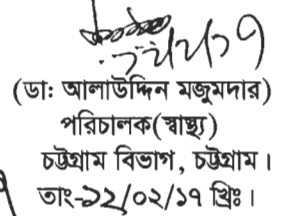 (ডা: আলাউদ্দিন মজুমদার)
পরিচালক(স্বাস্থ্য)
চট্টগ্রাম বিভাগ, চট্টগ্রাম।
তাং-১২/০২/১৭ খ্রিঃ।